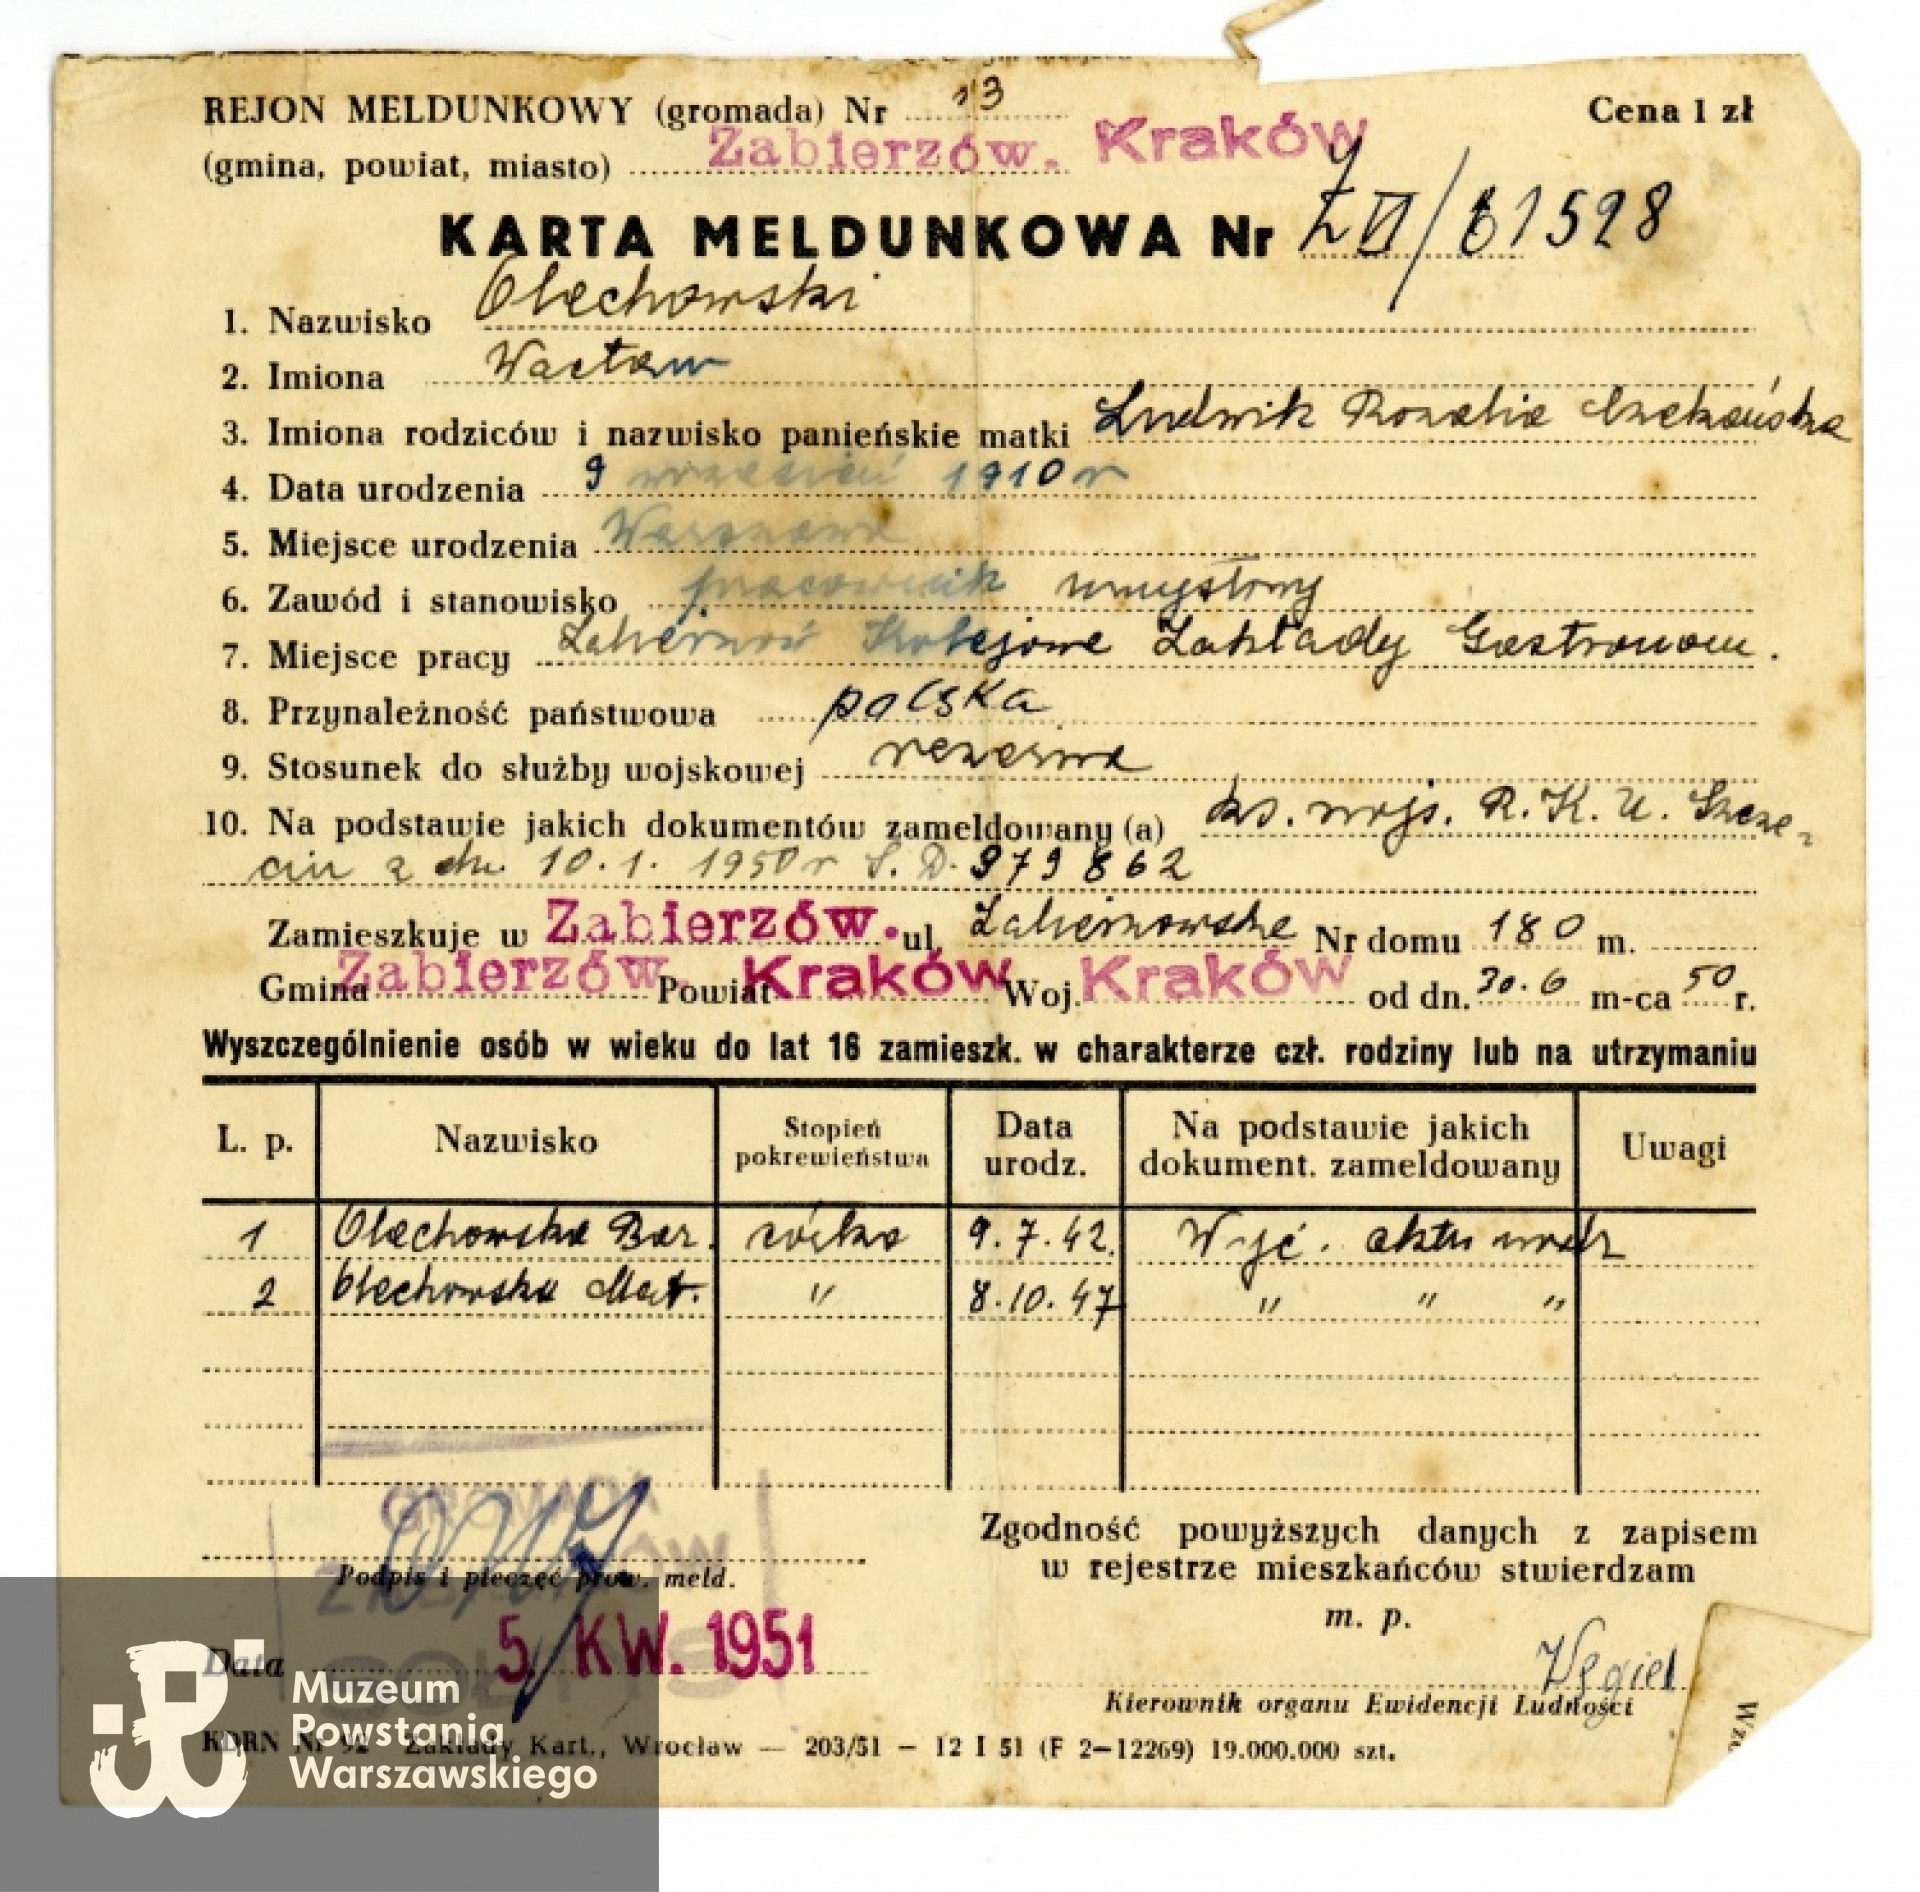 REJON MELDUNKOWY (gromada) Nr 13 Cena 1 zł
(gmina, powiat, miasto) Zabierzów. Kraków
KARTA MELDUNKOWA Nr ZVI/61528
1. Nazwisko Olechowski
2. Imiona Wacław
3. Imiona rodziców i nazwisko panieńskie matki Ludwik Rozalia
4. Data urodzenia 9 wrzesień 1910 r
5. Miejsce urodzenia Warszawa
6. Zawód i stanowisko pracownik umysłowy
7. Miejsce pracy Zabierzów Kolejowe Zakłady Gastronom.
8. Przynależność państwowa polska
9. Stosunek do służby wojskowej rezerwa
10. Na podstawie jakich dokumentów zameldowany (a) ks. wojs. R.K.U. Szcze-
cin z dn. 10.1.1950 r S.D. 979862
Zamieszkuje w Zabierzów. ul. Nr domu 180 m.
Gmina Zabierzów. Powiat Kraków Woj. Kraków od dn. 30.6 m-ca 50 r.
Wyszczególnienie osób w wieku do lat 16 zamieszk. w charakterze czł. rodziny lub na utrzymaniu
L. p. Nazwisko Stopień pokrewieństwa Data urodz. Na podstawie jakich dokument. zameldowany Uwagi
1 Olechowska Bar. córka 9.7.42. Wyć. aktu urodz
2 Olechowska Mał. " 8.10.47 " " "
GROMADA
ZABIERZÓW
SOŁTYS
Podpis i pieczęć prow. meld.
Data 5. KW. 1951
Zgodność powyższych danych z zapisem
w rejestrze mieszkańców stwierdzam
m. p.
Węgiel
Kierownik organu Ewidencji Ludności
KDRN Nr 92 Zakłady Kart., Wrocław — 203/51 — 12 I 51 (F 2—12269) 19.000.000 szt.
Muzeum
Powstania
Warszawskiego